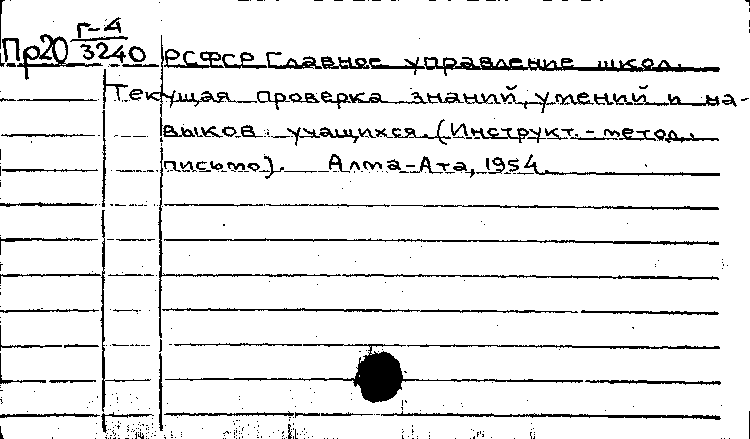 Г-4
Пр20 3240 РСФСР Главное управление школ.
Текущая проверка знаний, умений и на-
выков учащихся. (Инструкт.-метод.
письмо). Алма-Ата, 1954.